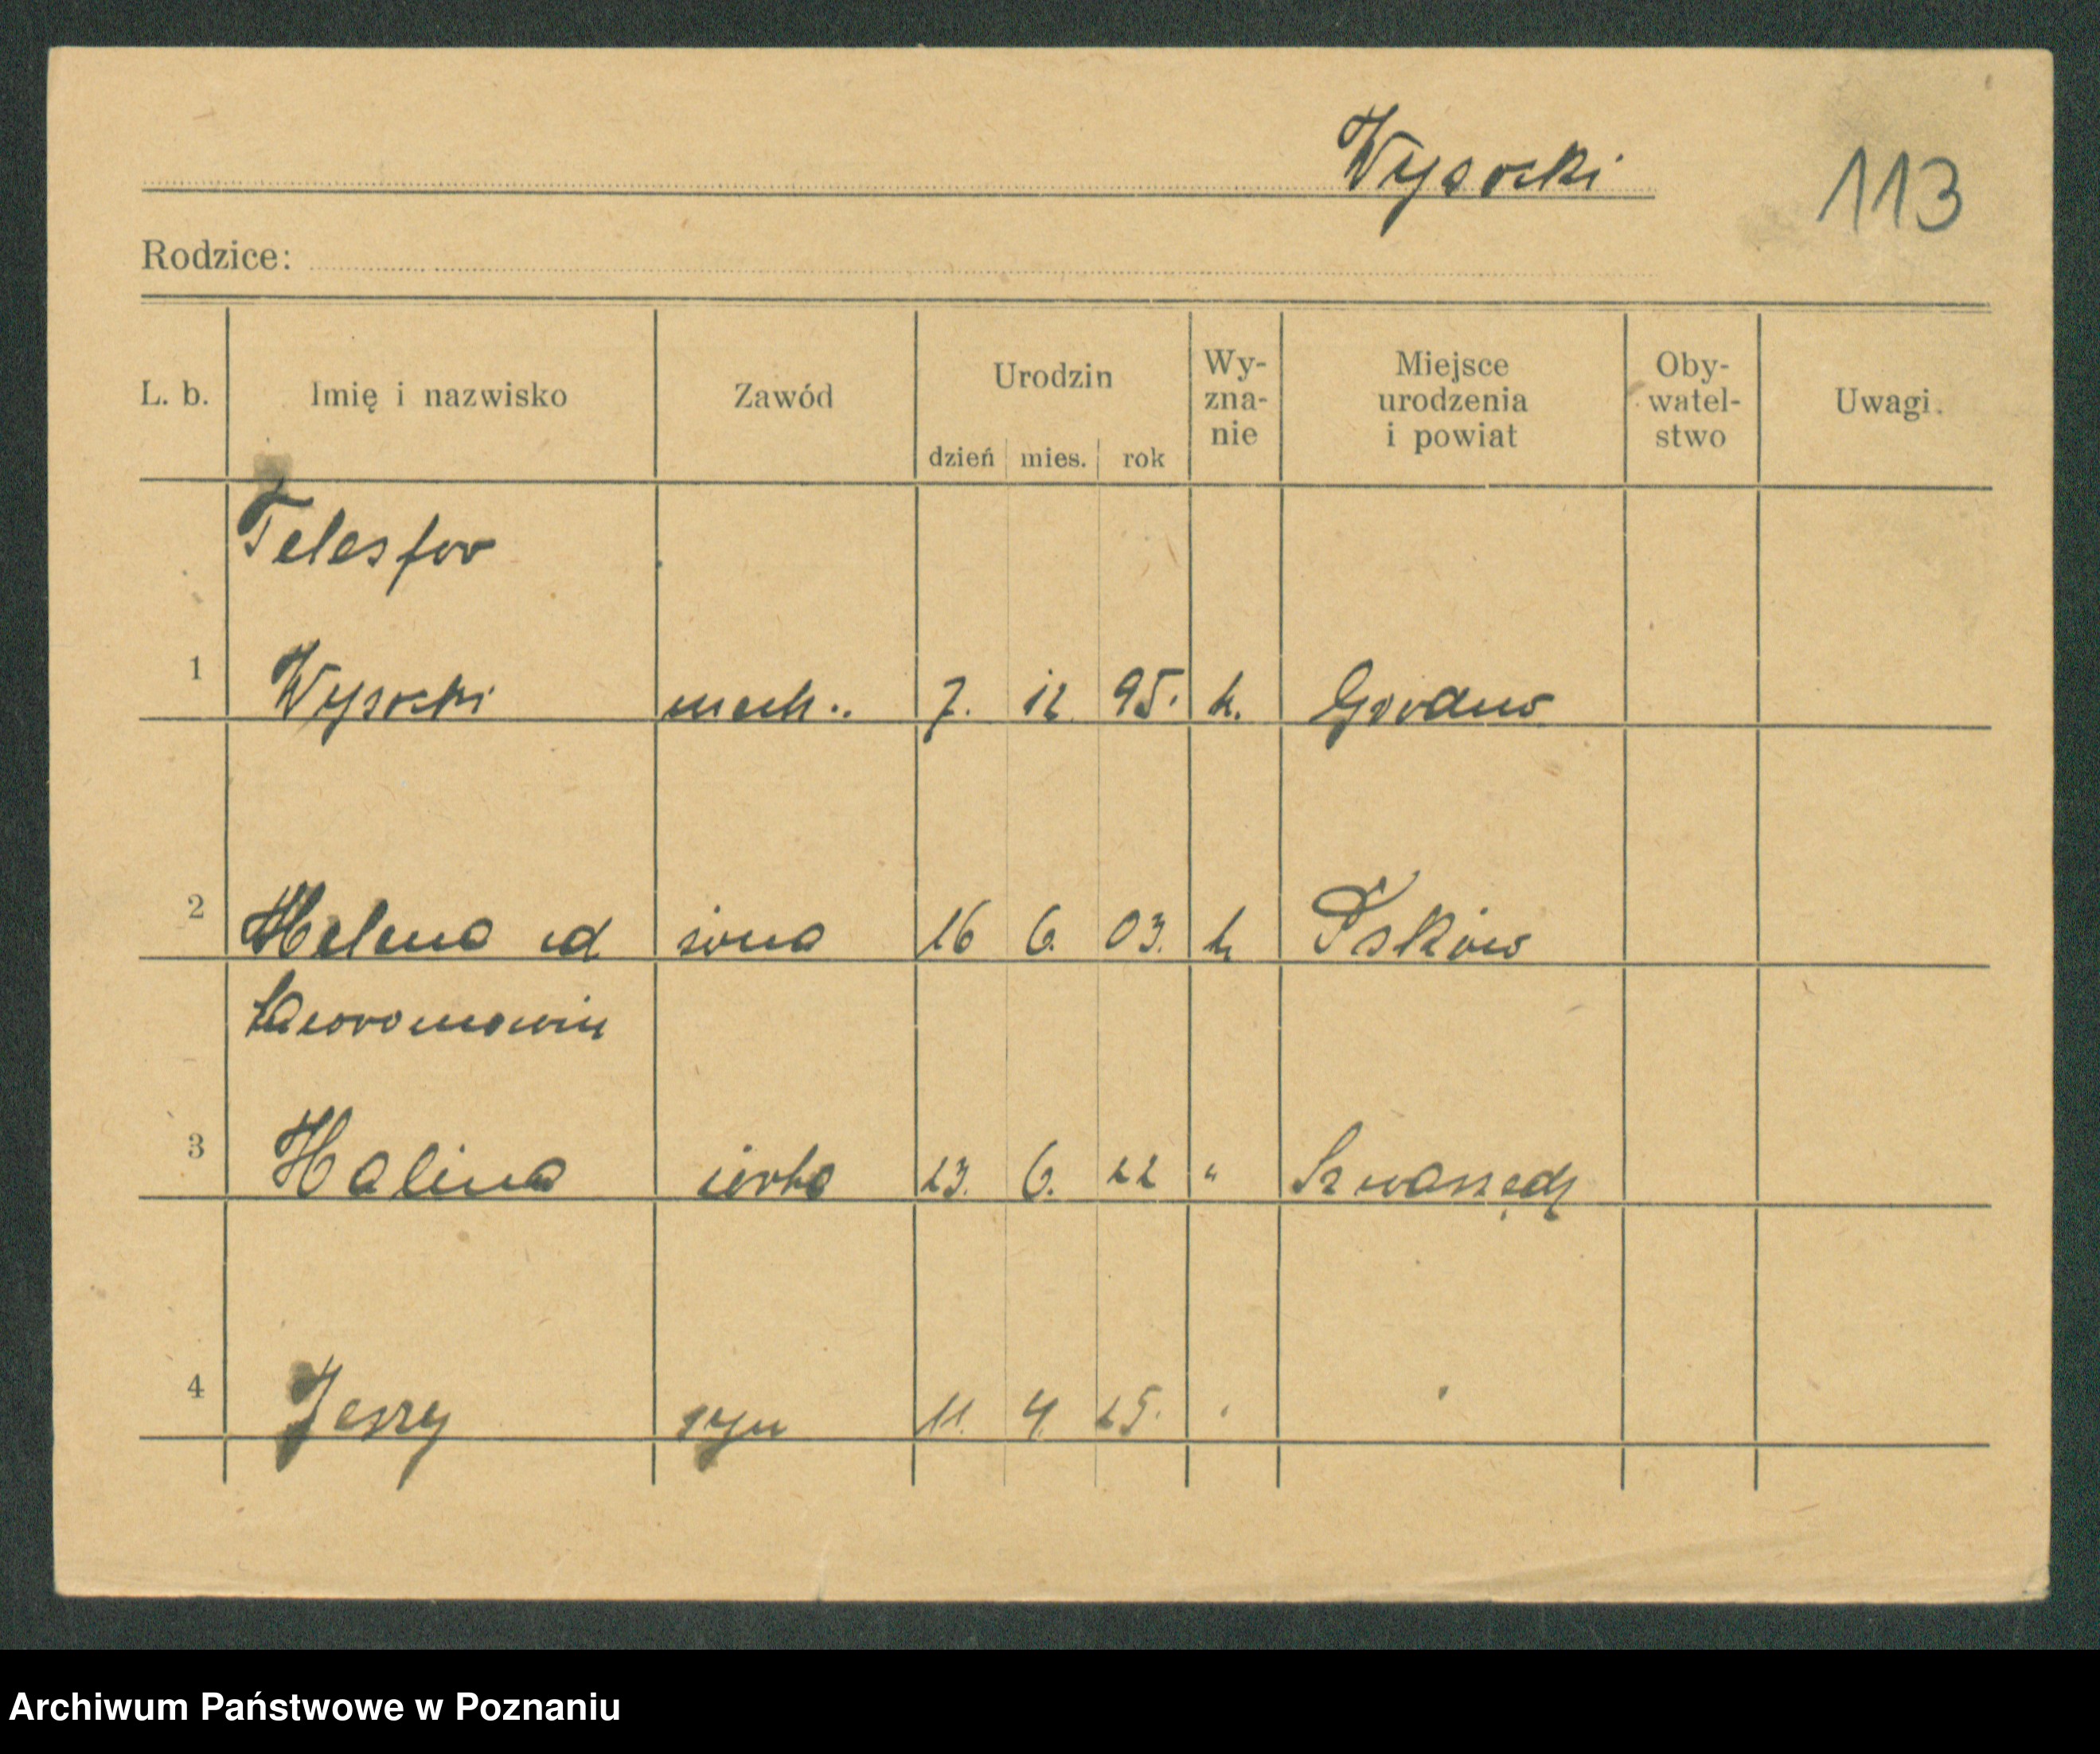 Wysocki
113
Rodzice:
L. b. Imię i nazwisko Zawód Urodzin dzień mies. rok Wy-zna-nie Miejsce urodzenia i powiat Oby-watel-stwo Uwagi.
Telesfor
1 Wysocki mech.. 7. 12. 95. k. Gordno
2 Helena id żona 16 6. 03. k Psków
3 Halina córka 23. 6. 22 " Szwarzędz
4 Jerzy syn 11. 4. 25. "
Archiwum Państwowe w Poznaniu